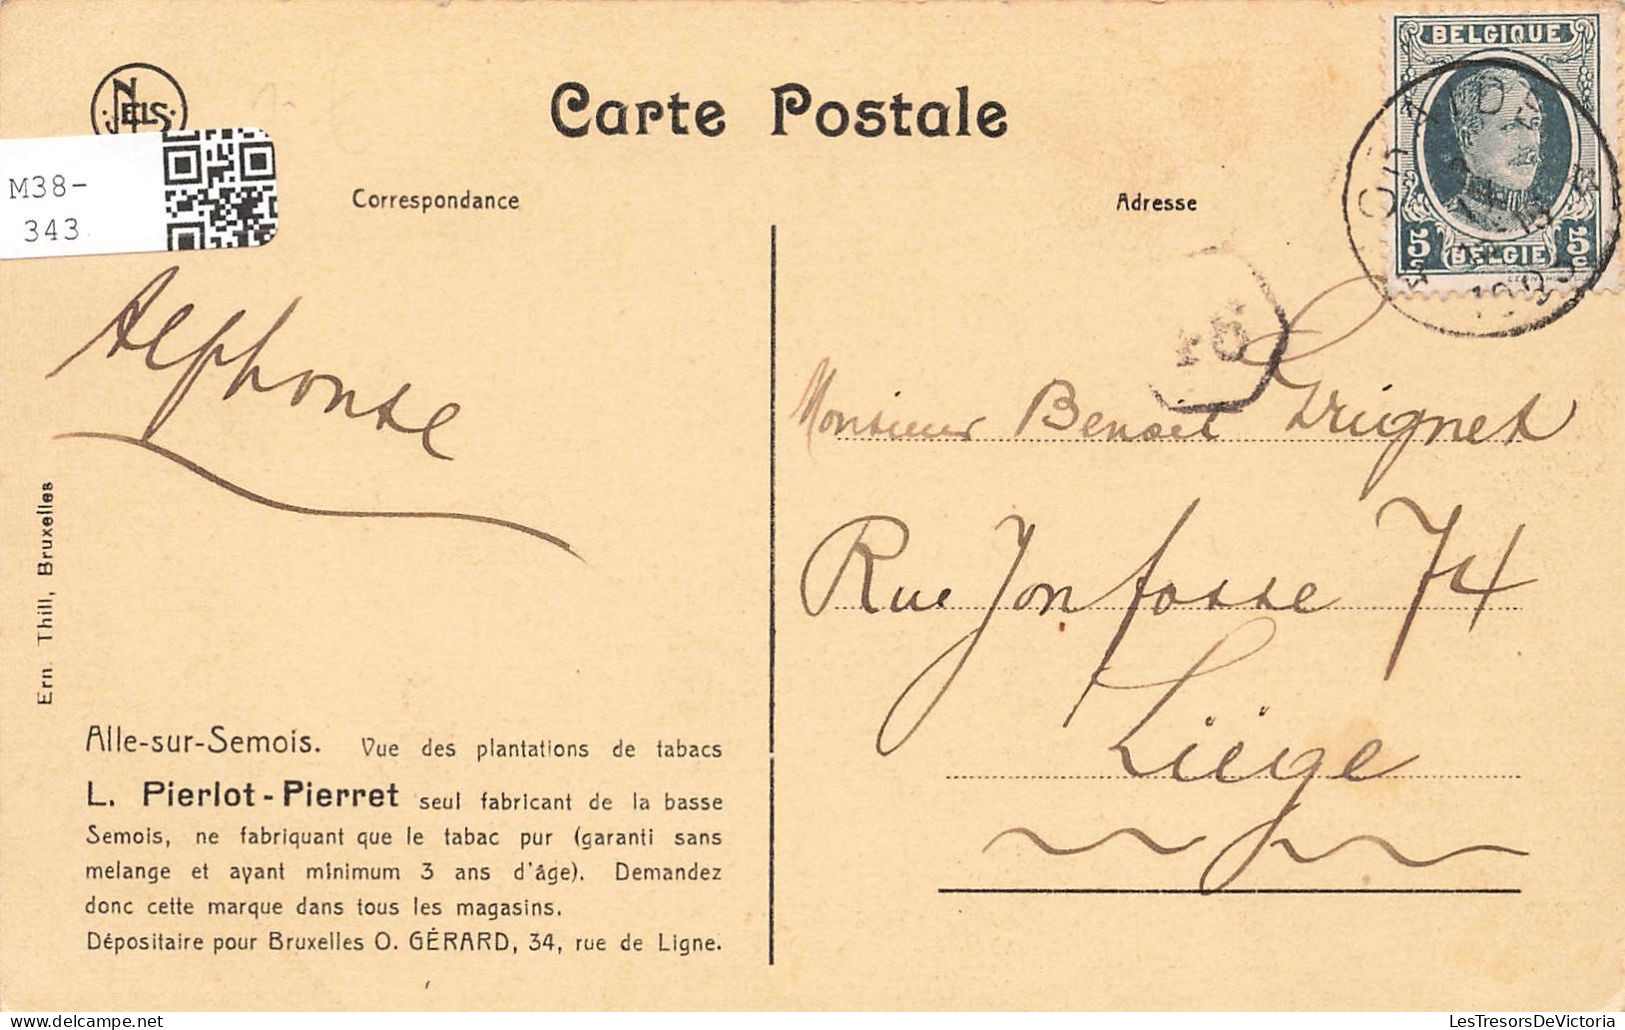 NELS
Carte Postale
BELGIQUE
5c BELGIE 5c
M38-
343
Correspondance
Adresse
Alphonse
15
Monsieur Benoit Grignet
Rue Jonfosse 74
Liége
Ern. Thill, Bruxelles
Alle-sur-Semois. Vue des plantations de tabacs
L. Pierlot-Pierret seul fabricant de la basse
Semois, ne fabriquant que le tabac pur (garanti sans
melange et ayant minimum 3 ans d'âge). Demandez
donc cette marque dans tous les magasins.
Dépositaire pour Bruxelles O. GÉRARD, 34, rue de Ligne.
LesTresorsDeVictoria